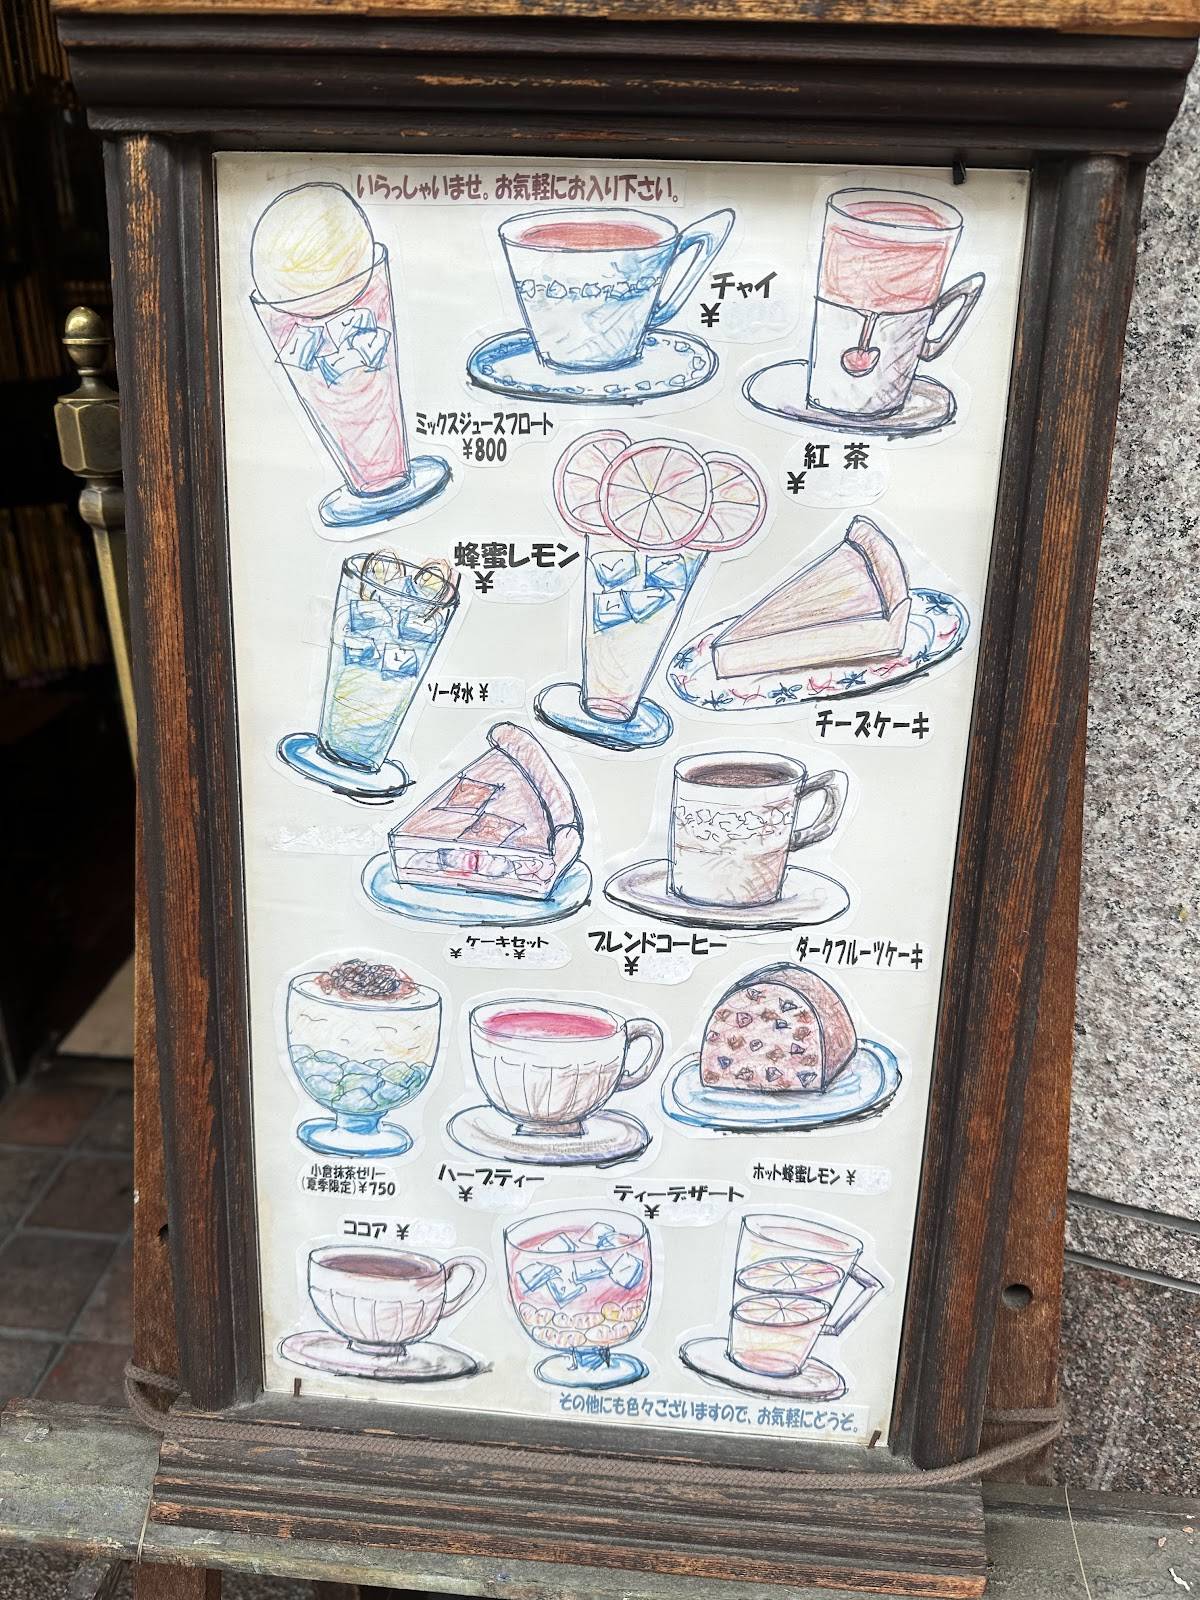 いらっしゃいませ。お気軽にお入り下さい。
チャイ
¥
ミックスジュースフロート
¥800
紅茶
¥
蜂蜜レモン
¥
ソーダ水 ¥
チーズケーキ
ケーキセット
¥ ・¥
ブレンドコーヒー
¥
ダークフルーツケーキ
小倉抹茶ゼリー
(夏季限定)¥750
ハーブティー
¥
ホット蜂蜜レモン ¥
ティーデザート
¥
ココア ¥
その他にも色々ございますので、お気軽にどうぞ。